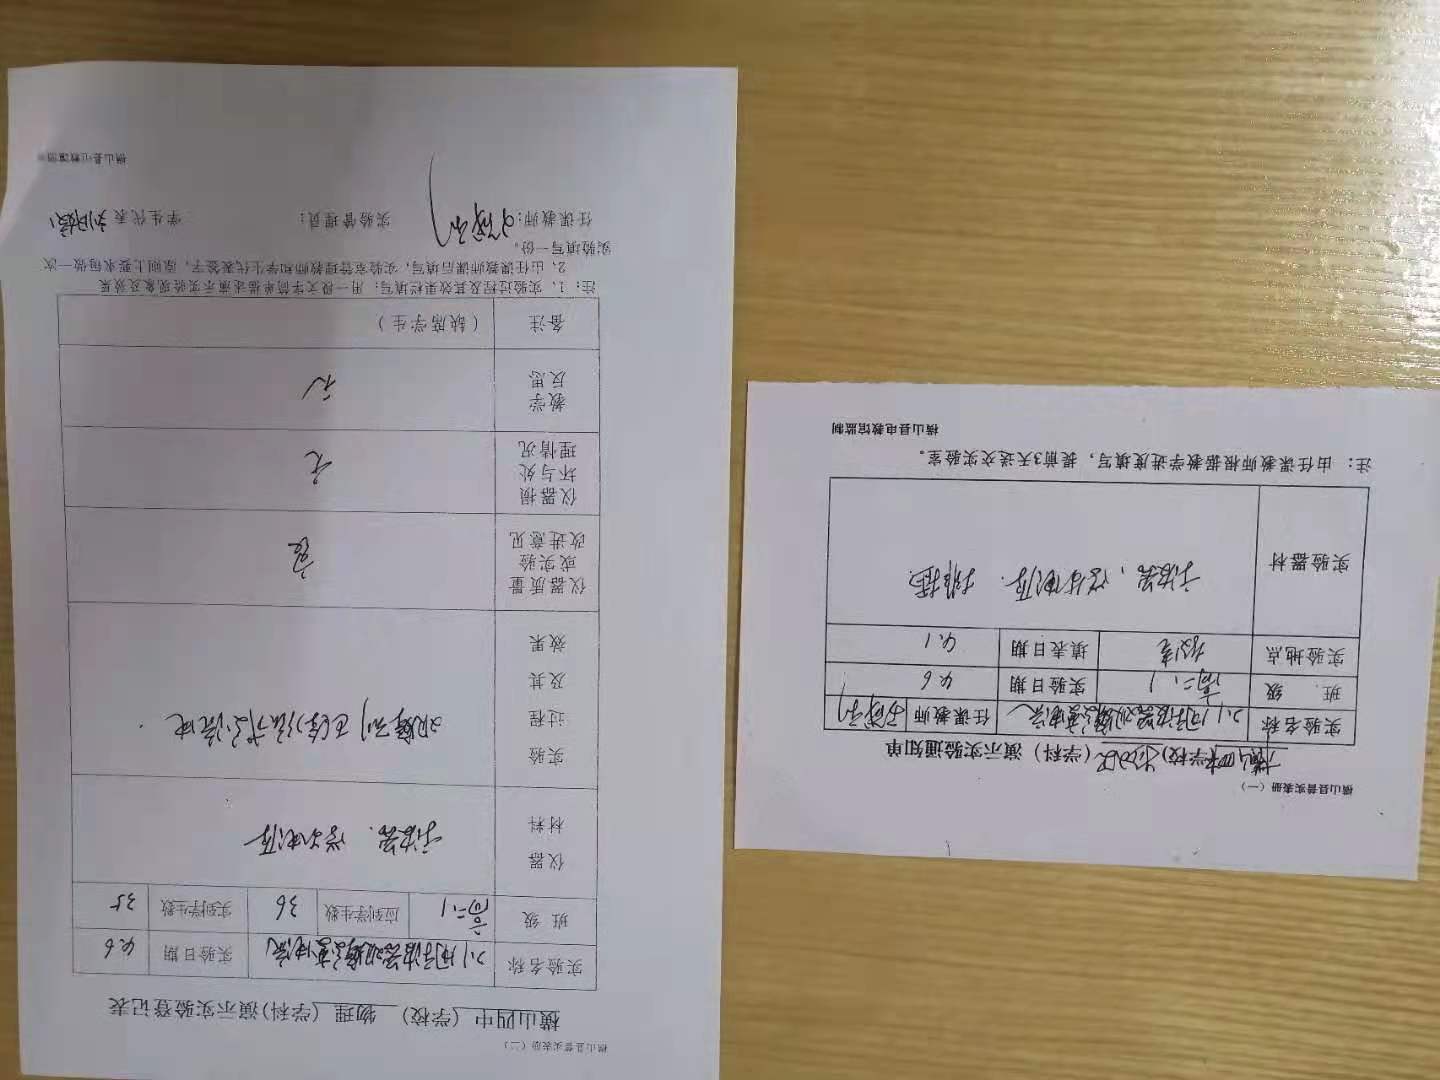 横山县普实表册（二）
横山四中（学校） 物理（学科）演示实验登记表
实验名称 用示波器观察交变电流 实验日期 4.6
班 级 高二.1 应到学生数 36 实到学生数 35
仪器
材料
示波器. 学生电源
实验
过程
及其
效果
观察到正
仪器质量
或实验
改进意见
仪器损
坏与处
理情况
无
教学
反思
备注 （缺席学生）
注：1、实验过程及其效果栏填写：用一段文字简单描述演示实验现象及效果
2、由任课教师课后填写，实验室管理教师和学生代表签字，原则上要求每做一次
实验填写一份。
任课教师： 实验管理员： 学生代表
横山县电教馆监制
横山县普实表册（一）
横山四中（学校）（学科）演示实验通知单
实验名称 用示波器观察交变电流 任课教师
班 级 高二.1 实验日期 4.6
实验地点 填表日期 4.1
实验器材
示波器、学生电源. 插排
注： 由任课教师根据教学进度填写，提前3天送交实验室。
横山县电教馆监制